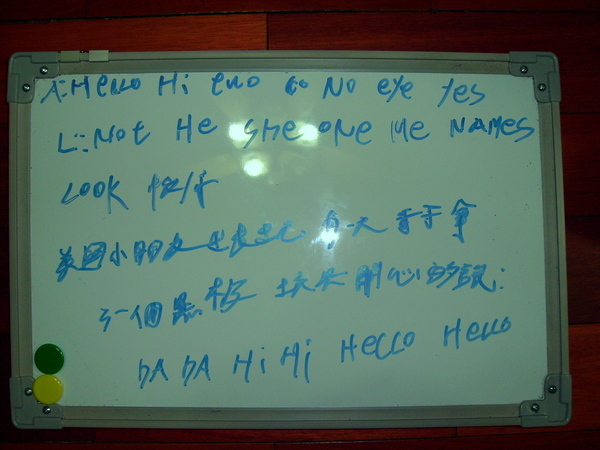 A: Hello Hi eno co No eye Yes
L: Not He She one Me NAMes
LOOK
美國小朋友 有一天 手拿
了一個黑板 開心的說:
DA DA Hi Hi Hello Hello